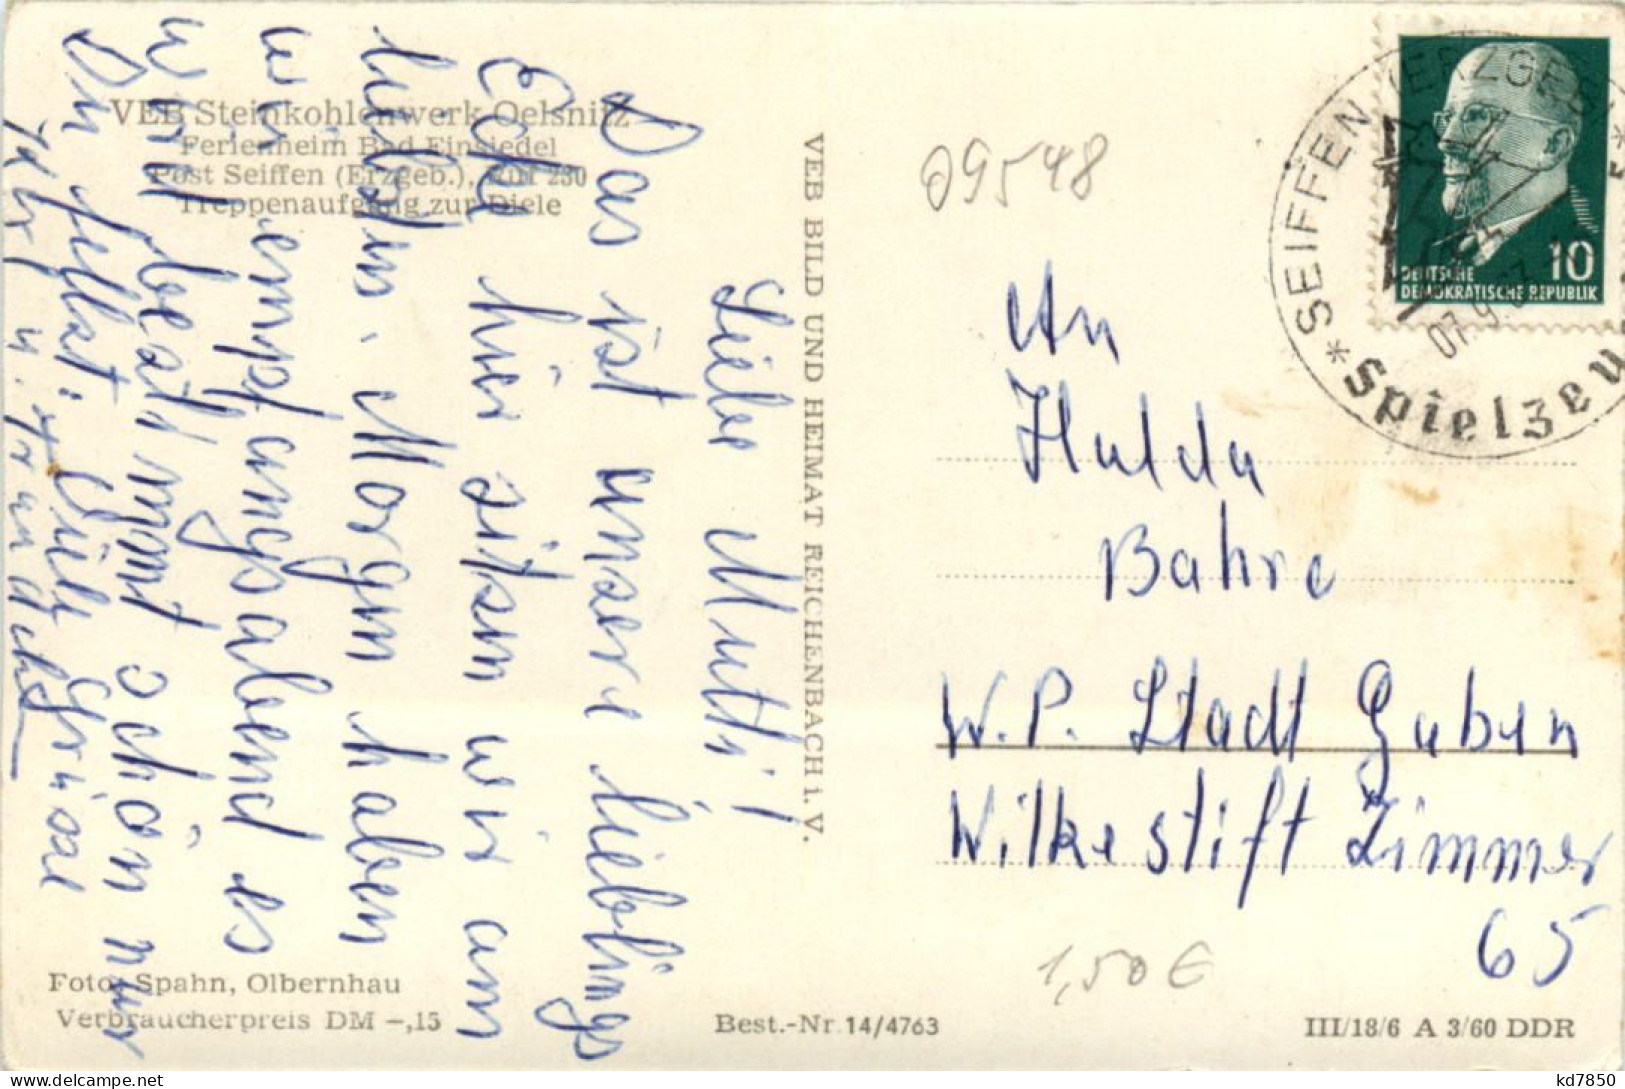 VEB Steinkohlenwerk Oelsnitz
Ferienheim Bad Einsiedel
Post Seiffen (Erzgeb.), Ruf 230
Treppenaufgang zur Diele
Liebe Mutti!
Das ist unsere Lieblings
Ecke hier sitzen wir am
liebsten. Morgen haben
wir Empfangsabend es
wird bestimmt schön nur
Du fehlst. Viele Grüsse
VEB BILD UND HEIMAT REICHENBACH i. V.
09548
SEIFFEN (ERZGEB.)
Spielzeu
07.9.63
10
DEUTSCHE
DEMOKRATISCHE REPUBLIK
An
Hulda
Bahre
W.P. Stadt Guben
Wilkestift Zimmer
65
1,50 €
Foto: Spahn, Olbernhau
Verbraucherpreis DM -,15
Best.-Nr. 14/4763
III/18/6 A 3/60 DDR
kd7850